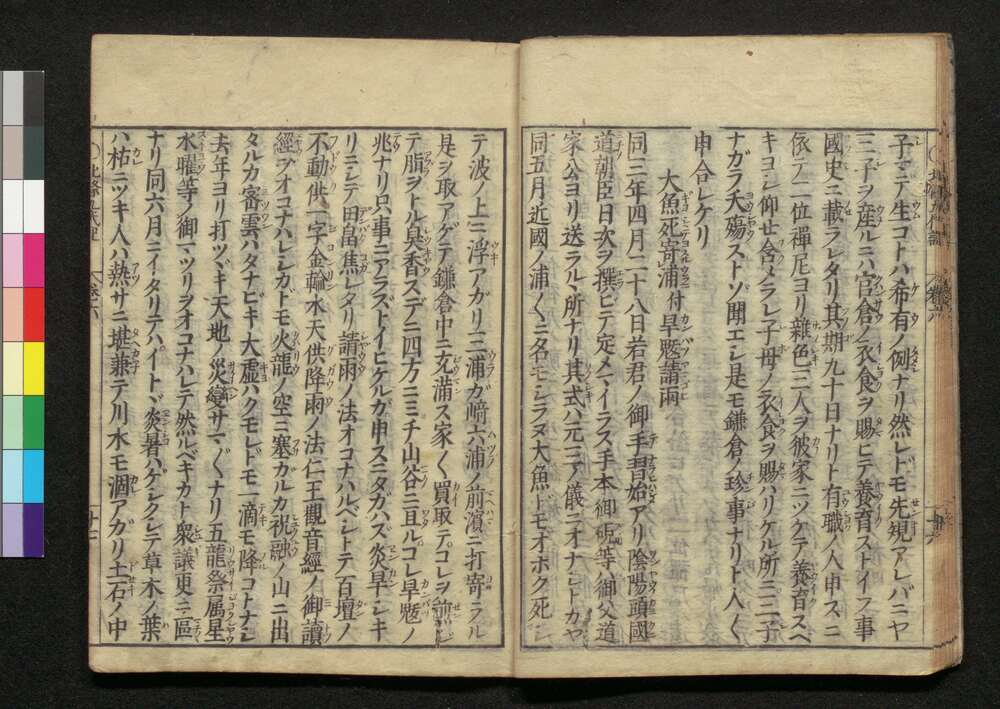 子ニテ生コトハ希有ノ例ナリ然レドモ先規アレバニヤ
三子ヲ産ルニハ官倉ノ衣食ヲ賜ヒテ養育ストイフ事
國史ニ載ラレタリ其期九十日ナリト有職ノ人申スニ
依テ二位禪尼ヨリ雜色三人ヲ彼家ニツケテ養育スベ
キヨシ仰せ含メラレ子母ノ衣食ヲ賜ハリケル所ニ三子
ナガラ夭殤ストソ聞エシ是モ鎌倉ノ珍事ナリト人〱
申合レケリ
大魚死寄浦付旱魃請雨
同三年四月二十八日若君ノ御手習始アリ陰陽頭國
道朝臣日次ヲ撰ビテ定メマイラス手本御硯等ハ御父道
家公ヨリ送ラルヽ所ナリ其式ハ元三ノ儀ニオナジトカヤ
同五月近國ノ浦〱ニ名モシラヌ大魚ドモオホク死シ
テ波ノ上ニ浮アガリ三浦ガ﨑六浦ノ前濱ニ打寄ラル
是ヲ取アゲテ鎌倉中ニ充滿ス家〱買取テコレヲ煎
テ脂ヲトル臭香スデニ四方ニミチ山谷ニ亘ルコレ旱魃ノ
兆ナリ只事ニアラズトイヒケルガ申スニタガハズ炎旱シキ
リニシテ田畠焦レタリ請雨ノ法オコナハルベシトテ百壇ノ
不動供一字金輪水天供降雨ノ法仁王觀音經ノ御讀
經ヲオコナハレシカトモ火龍ノ空ニ塞カルカ祝融ノ山ニ出
タルカ密雲ハタナビキ大虚ハクモレドモ一滴モ降コトナシ
去年ヨリ打ツヾキ天地ノ災變サマ〲ナリ五龍祭属星
水曜等ノ御マツリヲオコナハレテ然ルベキカト衆議更ニ區
ナリ同六月ニイタリテハイトヾ炎暑ハゲシクシテ草木ノ葉
ハ枯ニツキ人ハ熱サニ堪兼テ川水モ涸アガリ土石ノ中